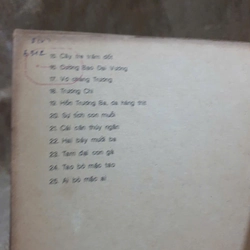 15. Cây tre trăm đốt
16. Cường Bạo Đại Vương
17. Vợ chồng Trương
18. Trương Chi
19. Hồn Trương Ba, da hàng thịt
20. Sự tích con muỗi
21. Cái cân thủy ngân
22. Hai bảy mười ba
23. Tam đại con gà
24. Táo bó mậc táo
25. Ai bó mậc ai